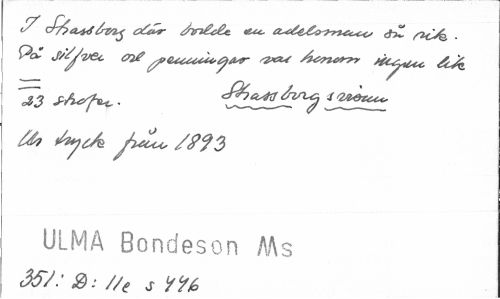 I Strassborg där bodde en adelsman så rik.
På silfver och penningar var honom ingen lik
23 strofer. Strassborgsvisan
Ur tryck från 1893
ULMA Bondeson Ms
351: D: 11e s 446